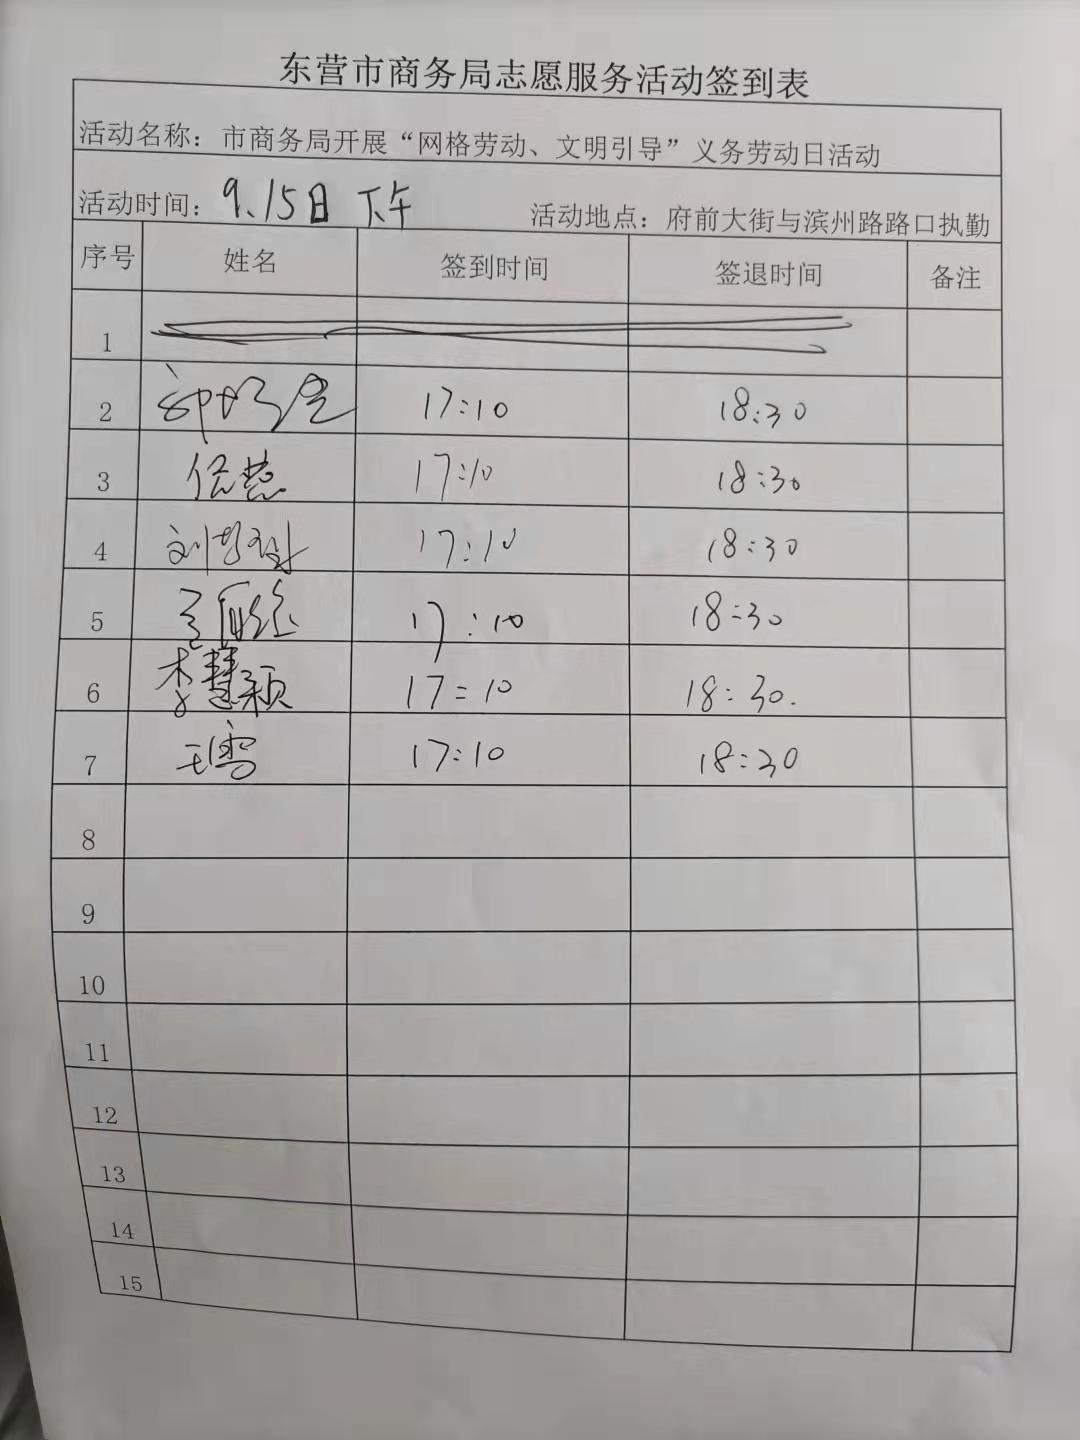 东营市商务局志愿服务活动签到表
活动名称：市商务局开展“网格劳动、文明引导”义务劳动日活动
活动时间：9.15日 下午 活动地点：府前大街与滨州路路口执勤
序号 姓名 签到时间 签退时间 备注
1
2 17:10 18:30
3 任慧 17:10 18:30
4 17:10 18:30
5 17:10 18:30
6 李慧颖 17:10 18:30.
7 王雪 17:10 18:30
8
9
10
11
12
13
14
15